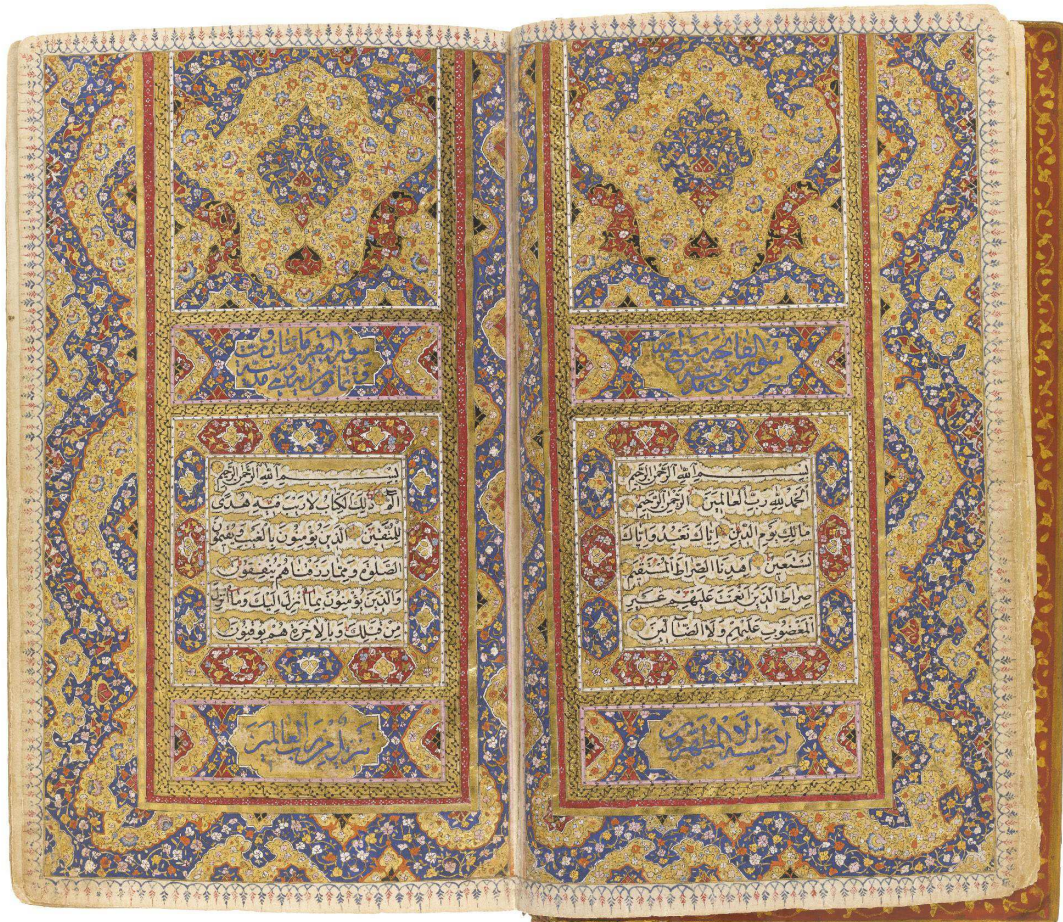 سورة الفاتحة سبع آيات
بسم الله الرحمن الرحيم
الحمد لله رب العالمين الرحمن الرحيم
مالك يوم الدين اياك نعبد واياك
نستعين اهدنا الصراط المستقيم
صراط الذين انعمت عليهم غير
المغضوب عليهم ولا الضالين
لا يمسه الا المطهرون
سورة البقرة مائتان وست
وثمانون آية
بسم الله الرحمن الرحيم
الم ذلك الكتاب لا ريب فيه هدى
للمتقين الذين يؤمنون بالغيب ويقيمون
الصلوة ومما رزقناهم ينفقون
والذين يؤمنون بما انزل اليك وما انزل
من قبلك وبالاخرة هم يوقنون
تنزيل من رب العالمين